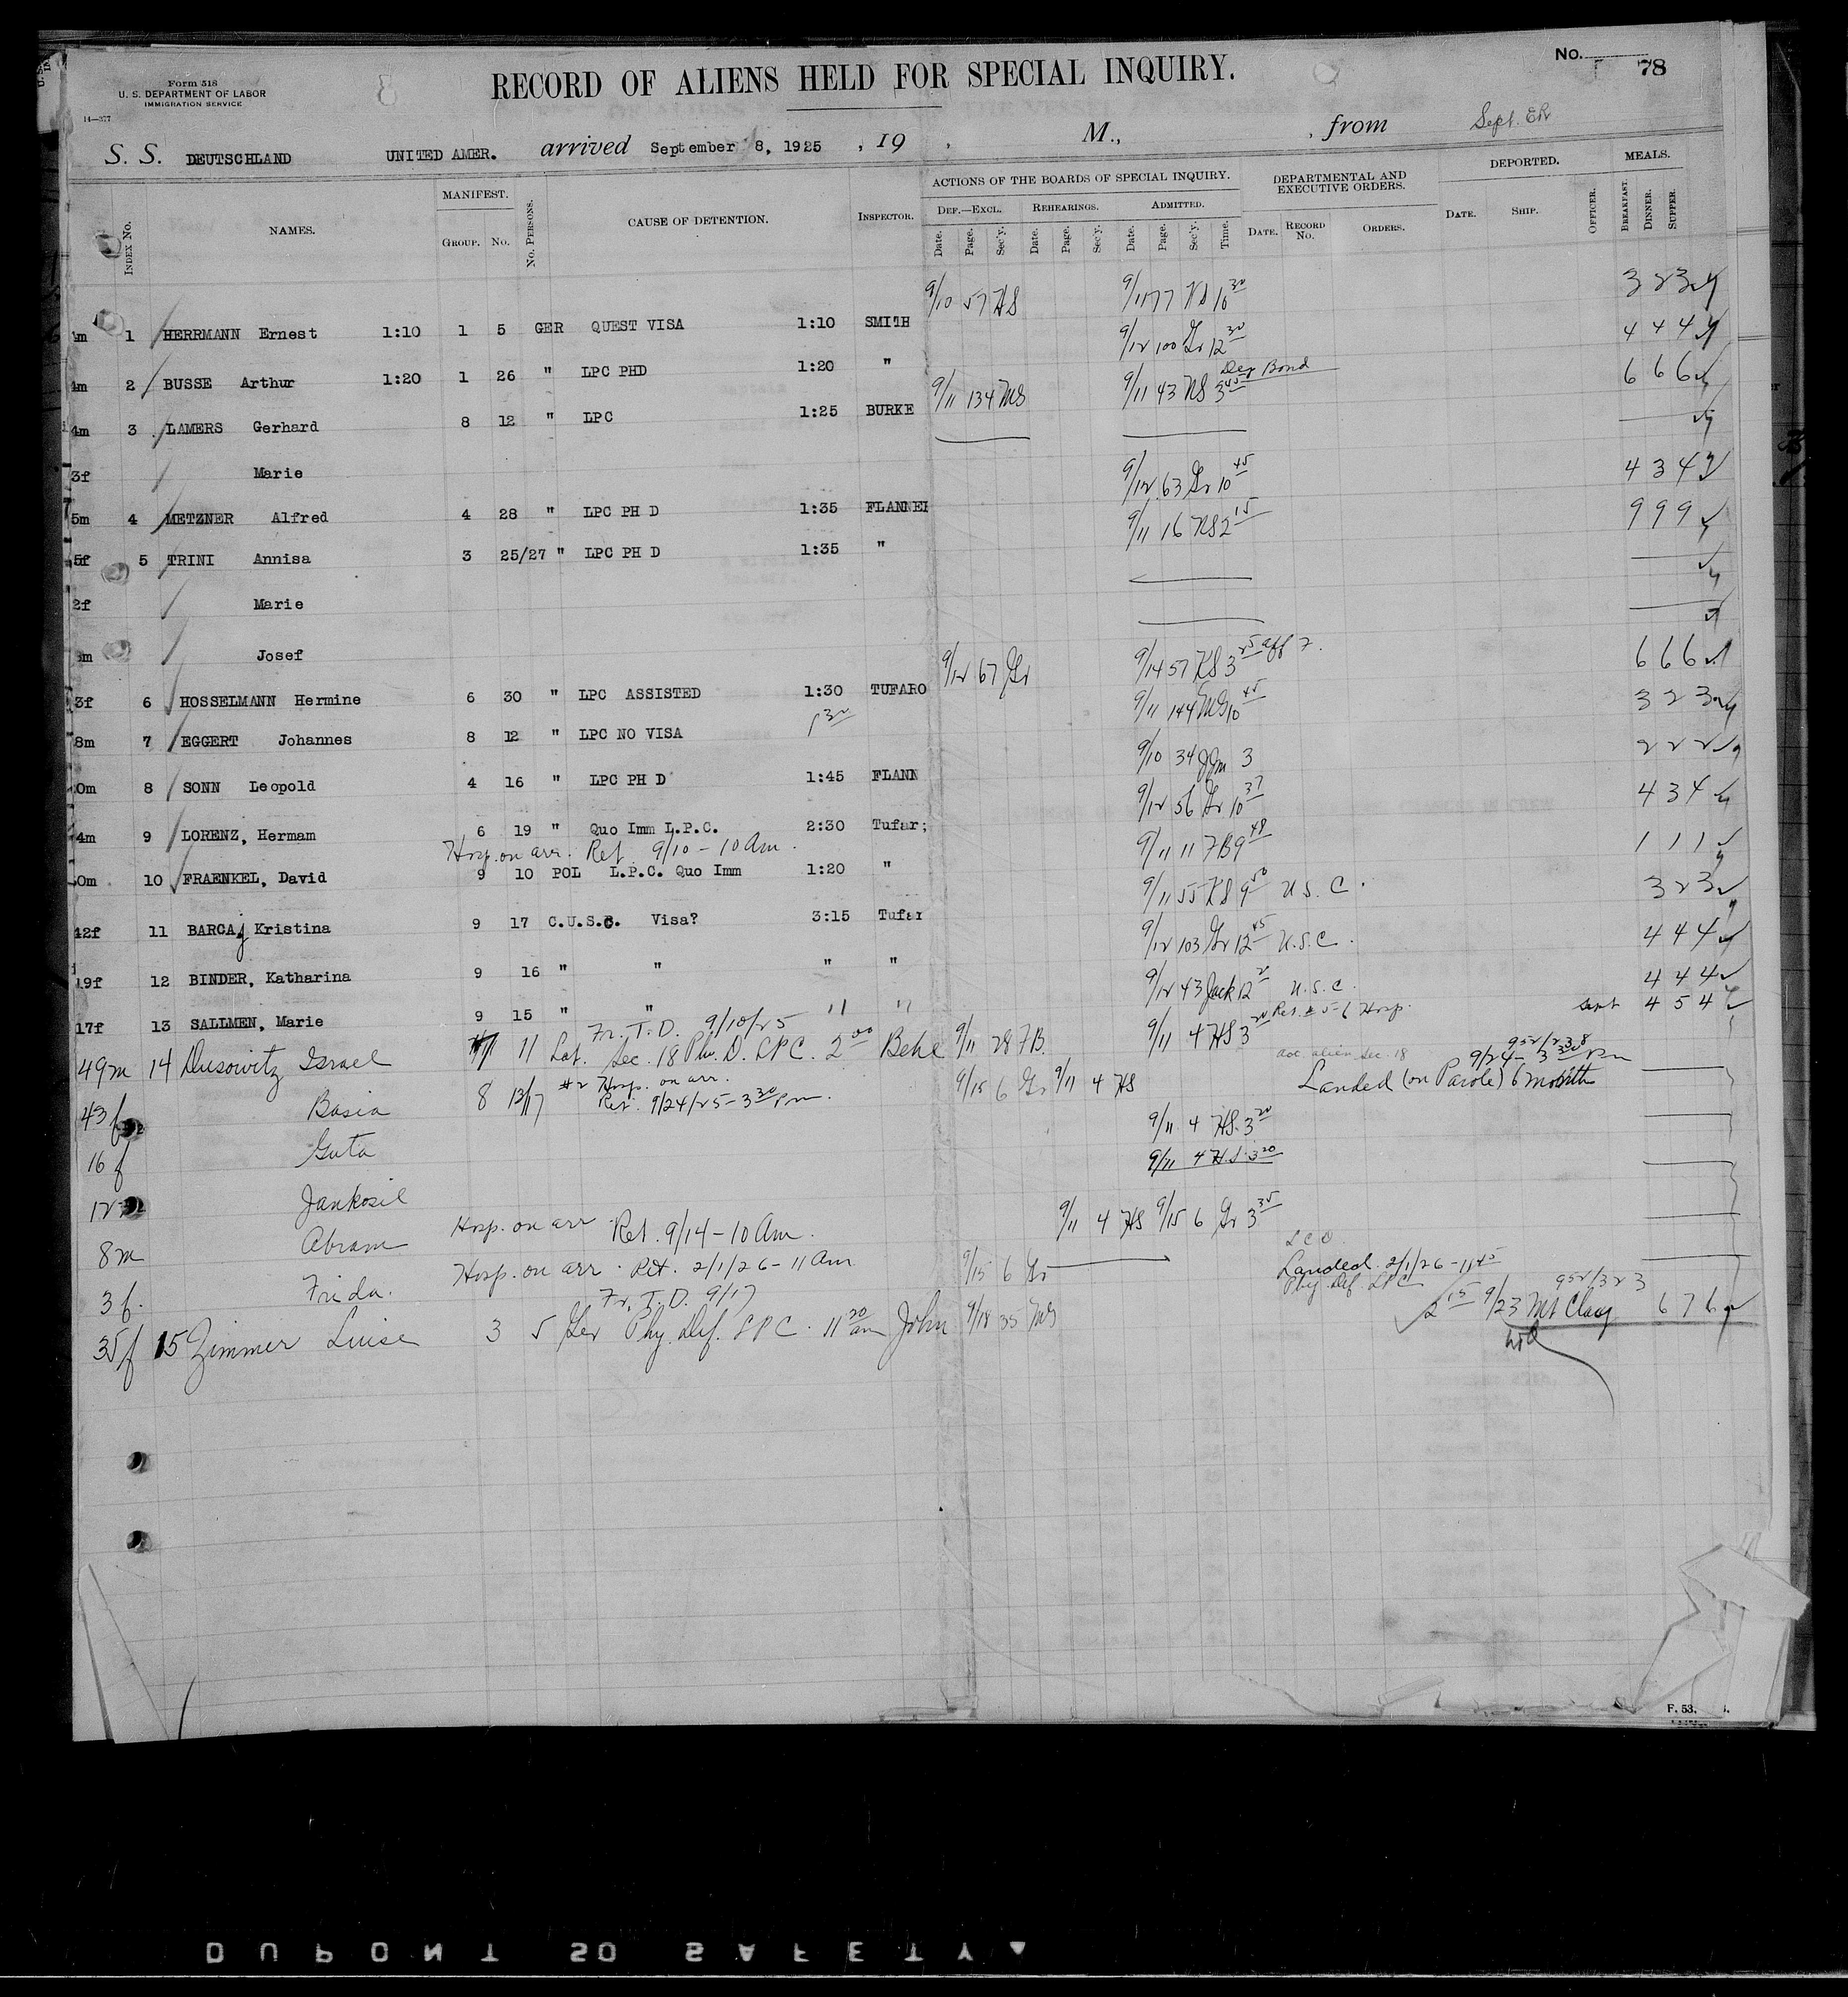 Form 518
U. S. DEPARTMENT OF LABOR
IMMIGRATION SERVICE
14—377
RECORD OF ALIENS HELD FOR SPECIAL INQUIRY.
No. 78
Sept. ER
S. S. DEUTSCHLAND UNITED AMER. arrived September 8, 1925 , 19 , M., , from
INDEX No. NAMES. MANIFEST. GROUP. No. No. PERSONS. CAUSE OF DETENTION. INSPECTOR. ACTIONS OF THE BOARDS OF SPECIAL INQUIRY. DEF.—EXCL. REHEARINGS. ADMITTED. Date. Page. Sec'y. Date. Page. Sec'y. Date. Page. Sec'y. Time. DEPARTMENTAL AND EXECUTIVE ORDERS. DATE. RECORD No. ORDERS. DEPORTED. DATE. SHIP. OFFICER. MEALS. BREAKFAST. DINNER. SUPPER.
m 1 HERRMANN Ernest 1:10 1 5 GER QUEST VISA 1:10 SMITH 9/10 57 HS 9/11 77 KS 10 30 3 2 3
4m 2 BUSSE Arthur 1:20 1 26 " LPC PHD 1:20 " 9/12 100 Gr 12 30 4 4 4
4m 3 LAMERS Gerhard 8 12 " LPC 1:25 BURKE 9/11 134 MS 9/11 43 KS 3 45 Dep Bond 6 6 6
3f Marie
5m 4 METZNER Alfred 4 28 " LPC PH D 1:35 FLANNE 9/12 63 Gr 10 45 4 3 4
5f 5 TRINI Annisa 3 25/27 " LPC PH D 1:35 " 9/11 16 KS 2 15 9 9 9
2f Marie
m Josef
3f 6 HOSSELMANN Hermine 6 30 " LPC ASSISTED 1:30 TUFARO 9/12 67 Gr 9/14 57 KS 3 25 6 6 6
8m 7 EGGERT Johannes 8 12 " LPC NO VISA 1 30 9/11 144 MS 10 45 3 2 3
0m 8 SONN Leopold 4 16 " LPC PH D 1:45 FLANN 9/10 34 3 2 2 2
4m 9 LORENZ, Hermam 6 19 " Quo Imm L.P.C. 2:30 Tufar; 9/12 56 Gr 10 37 4 3 4
Hosp. on arr. Ret 9/10 - 10 Am.
0m 10 FRAENKEL, David 9 10 POL L.P.C. Quo Imm 1:20 " 9/11 11 FB 9 48 1 1 1
42f 11 BARCAj Kristina 9 17 C.U.S.C. Visa? 3:15 Tufar 9/11 55 KS 9 50 U.S.C. 3 2 3
19f 12 BINDER, Katharina 9 16 " " " " 9/12 103 Gr 12 45 U.S.C. 4 4 4
17f 13 SALLMEN, Marie 9 15 " " " " 9/12 43 Jack 12 U.S.C. 4 4 4
Fr. T. D. 9/10/25
49m 14 Dusowitz Israel 11 Lat. Sec. 18 Phy. D. LPC. 2 00 Behe 9/11 28 FB. 9/11 4 HS 3 20 4 5 4
#2 Hosp. on arr.
43f Basia 8 13/17 Ret. 9/24/25 - 3 30 Pm. 9/15 6 Gr 9/11 4 HS 9/24 - 3 30 Pm Landed (on Parole) 6 months
16f Guta 9/11 4 HS. 3 20
12 Jankosil 9/11 4 H.S. 3 20
8m Abram Hosp. on arr. Ret. 9/14 - 10 Am. 9/11 4 HS 9/15 6 Gr 3 35
3f. Frida. Hosp. on arr. Ret. 2/1/26 - 11 Am 9/15 6 Gr Landed 2/1/26 - 11 45
Phy. Def. LPC
Fr. T. D. 9/17
35f 15 Zimmer Luise 3 5 Ger Phy. Def. LPC. 11 20 am John 9/18 35 MS 2 15 9/23 Mt Clay 6 7 6
F. 53.
DUPONT SO SAFETY